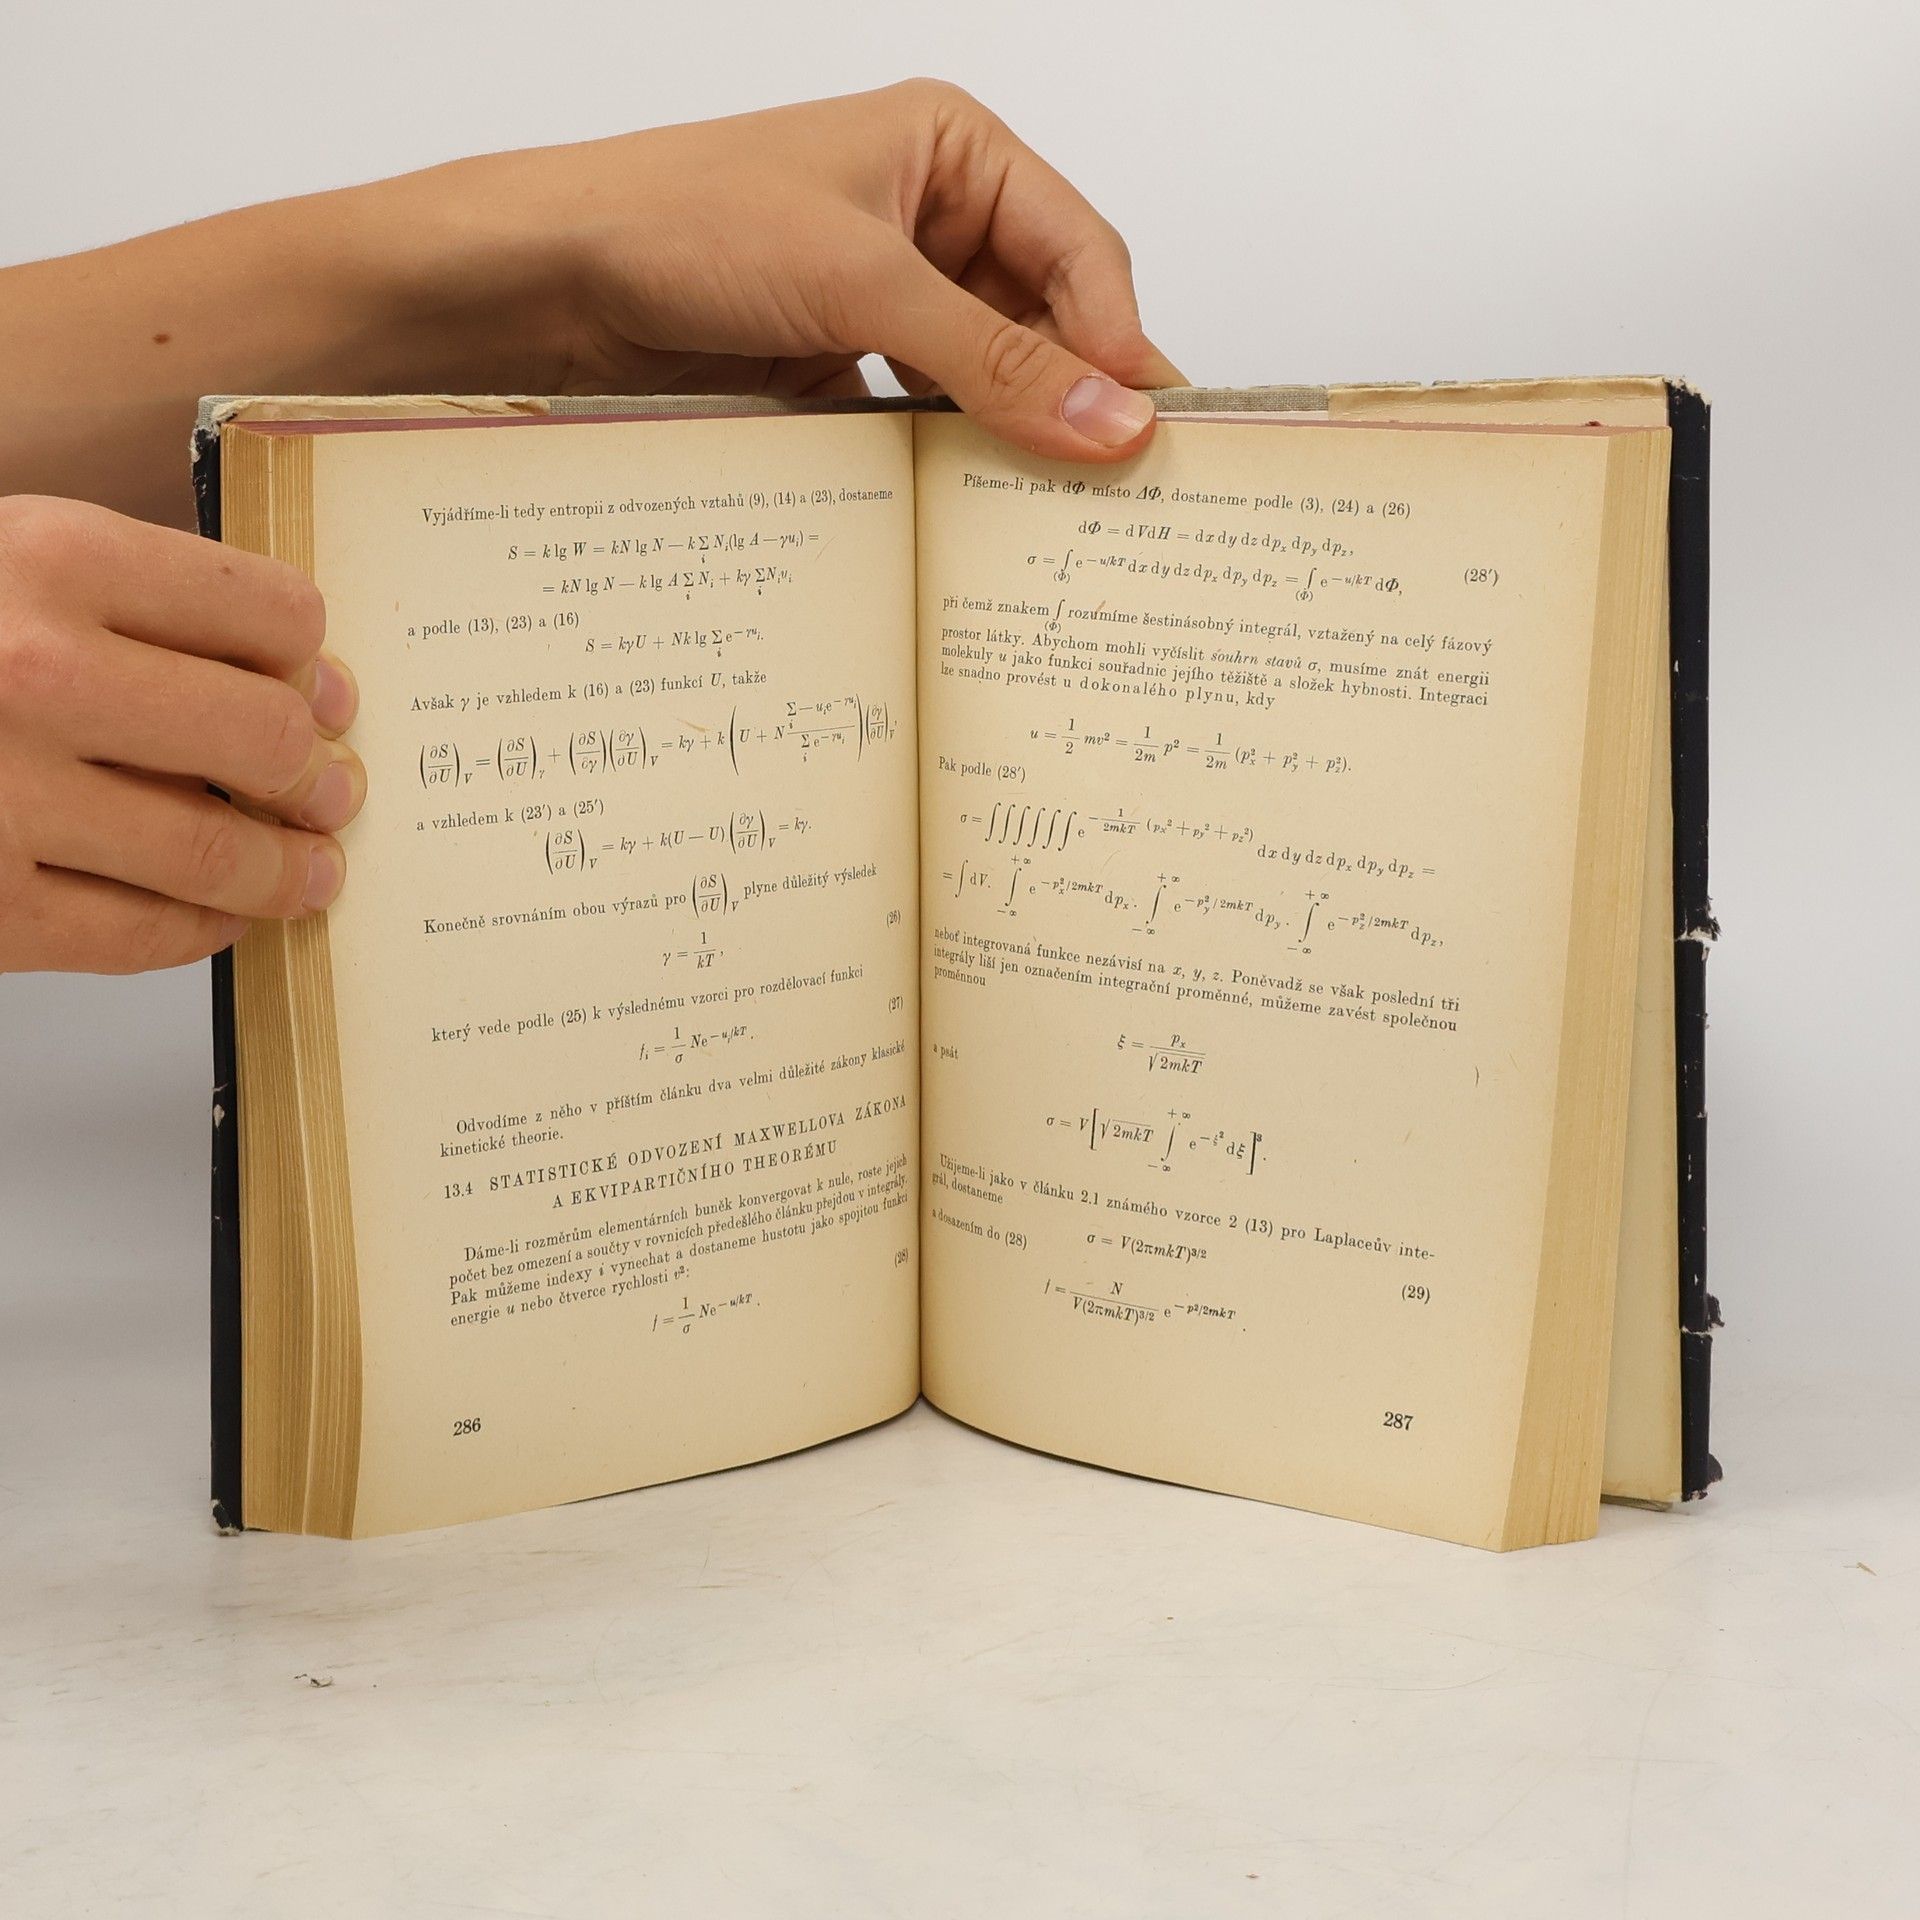 Vyjádříme-li tedy entropii z odvozených vztahů (9), (14) a (23), dostaneme
S = k lg W = kN lg N — k Σ_i N_i(lg A — γu_i) =
= kN lg N — k lg A Σ_i N_i + kγ Σ_i N_i u_i
a podle (13), (23) a (16)
S = kγU + Nk lg Σ_i e^{—γu_i}.
Avšak γ je vzhledem k (16) a (23) funkcí U, takže
(∂S/∂U)_V = (∂S/∂U)_γ + (∂S/∂γ)(∂γ/∂U)_V = kγ + k (U + N (Σ_i —u_i e^{—γu_i})/(Σ_i e^{—γu_i})) (∂γ/∂U)_V,
a vzhledem k (23′) a (25′)
(∂S/∂U)_V = kγ + k(U — U) (∂γ/∂U)_V = kγ.
Konečně srovnáním obou výrazů pro (∂S/∂U)_V plyne důležitý výsledek
γ = 1/kT, (26)
který vede podle (25) k výslednému vzorci pro rozdělovací funkci
f_i = 1/σ Ne^{—u_i/kT}. (27)
Odvodíme z něho v příštím článku dva velmi důležité zákony klasické
kinetické theorie.
13.4 STATISTICKÉ ODVOZENÍ MAXWELLOVA ZÁKONA
A EKVIPARTIČNÍHO THEORÉMU
Dáme-li rozměrům elementárních buněk konvergovat k nule, roste jejich
počet bez omezení a součty v rovnicích předešlého článku přejdou v integrály.
Pak můžeme indexy i vynechat a dostaneme hustotu jako spojitou funkci
energie u nebo čtverce rychlosti v²:
f = 1/σ Ne^{—u/kT}. (28)
286
Píšeme-li pak dΦ místo ΔΦ, dostaneme podle (3), (24) a (26)
dΦ = dVdH = dx dy dz dp_x dp_y dp_z,
σ = ∫_(Φ) e^{—u/kT} dx dy dz dp_x dp_y dp_z = ∫_(Φ) e^{—u/kT} dΦ, (28′)
při čemž znakem ∫_(Φ) rozumíme šestinásobný integrál, vztažený na celý fázový
prostor látky. Abychom mohli vyčíslit souhrn stavů σ, musíme znát energii
molekuly u jako funkci souřadnic jejího těžiště a složek hybnosti. Integraci
lze snadno provést u dokonalého plynu, kdy
u = 1/2 mv² = 1/2m p² = 1/2m (p_x² + p_y² + p_z²).
Pak podle (28′)
σ = ∫∫∫∫∫∫ e^{—1/2mkT (p_x² + p_y² + p_z²)} dx dy dz dp_x dp_y dp_z =
= ∫ dV. ∫_{—∞}^{+∞} e^{—p_x²/2mkT} dp_x . ∫_{—∞}^{+∞} e^{—p_y²/2mkT} dp_y . ∫_{—∞}^{+∞} e^{—p_z²/2mkT} dp_z,
neboť integrovaná funkce nezávisí na x, y, z. Poněvadž se však poslední tři
integrály liší jen označením integrační proměnné, můžeme zavést společnou
proměnnou
ξ = p_x/√2mkT
a psát
σ = V[√2mkT ∫_{—∞}^{+∞} e^{—ξ²} dξ]³.
Užijeme-li jako v článku 2.1 známého vzorce 2 (13) pro Laplaceův inte-
grál, dostaneme
σ = V(2πmkT)^{3/2}
a dosazením do (28)
f = N/V(2πmkT)^{3/2} e^{—p²/2mkT}. (29)
287